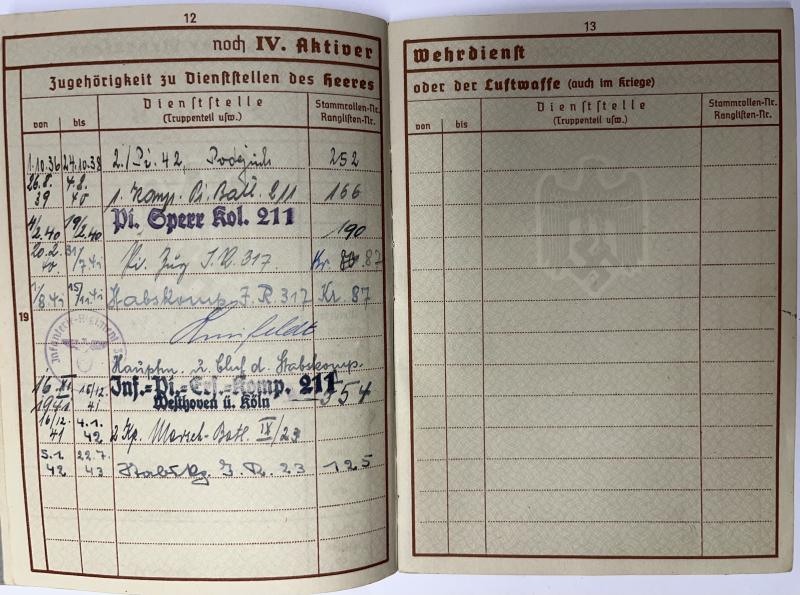 12
noch IV. Aktiver
Zugehörigkeit zu Dienststellen des Heeres
von bis Dienststelle (Truppenteil usw.) Stammrollen-Nr. Ranglisten-Nr.
1.10.36 24.10.38 2./Pi. 42, Podejuch 252
26.8.39 4.8.40 1. Komp. Pi. Batl. 211 166
4/2.40 19/2.40 Pi. Sperr Kol. 211 190
20.2.40 31/7 41 Pi. Zug J.R. 317. Kr. 87
1/8 41 15/11 41 Stabskomp. J.R. 317 Kr. 87
19
Hauptm. u. Chef d. Stabskomp.
16.XI.1941 15/12.41 Inf.-Pi.-Ers.-Komp. 211 354
Westhoven ü. Köln
16/12.41 4.1.42 2 Kp. Marsch-Batl. IX/23
5.1.42 22.7.43 Stabskp. J.R. 23 125
13
Wehrdienst
oder der Luftwaffe (auch im Kriege)
von bis Dienststelle (Truppenteil usw.) Stammrollen-Nr. Ranglisten-Nr.